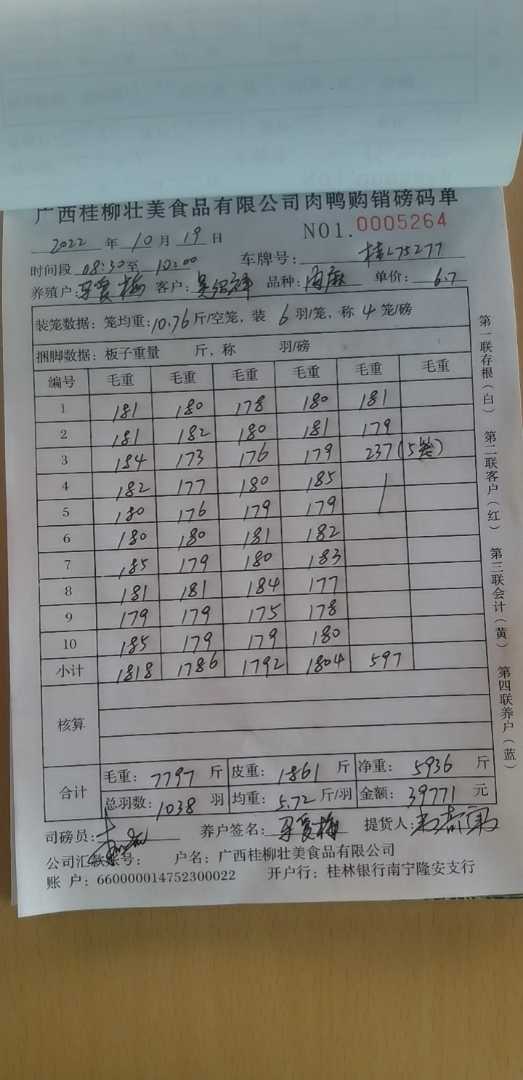 广西桂柳壮美食品有限公司肉鸭购销磅码单
2022 年 10 月 19 日 NO1.0005264
时间段 08:30至 10:00 车牌号: 桂L75277
养殖户: 梅 客户: 吴 品种: 麻 单价: 6.7
装笼数据: 笼均重: 10.76 斤/空笼, 装 6 羽/笼, 称 4 笼/磅
捆脚数据: 板子重量 斤, 称 羽/磅
编号 毛重 毛重 毛重 毛重 毛重 毛重
1 181 180 178 180 181
2 181 182 180 181 179
3 184 173 176 179 237 (5笼)
4 182 177 180 185
5 180 176 179 179
6 180 180 181 182
7 185 179 180 183
8 181 181 184 177
9 179 179 175 178
10 185 179 179 180
小计 1818 1786 1792 1804 597
核算
合计 毛重: 7797 斤 皮重: 1861 斤 净重: 5936 斤
总羽数: 1038 羽 均重: 5.72 斤/羽 金额: 39771 元
司磅员: 养户签名: 梅 提货人:
公司汇款账号: 户名: 广西桂柳壮美食品有限公司
账 户: 660000014752300022 开户行: 桂林银行南宁隆安支行
第一联存根(白) 第二联客户(红) 第三联会计(黄) 第四联养户(蓝)